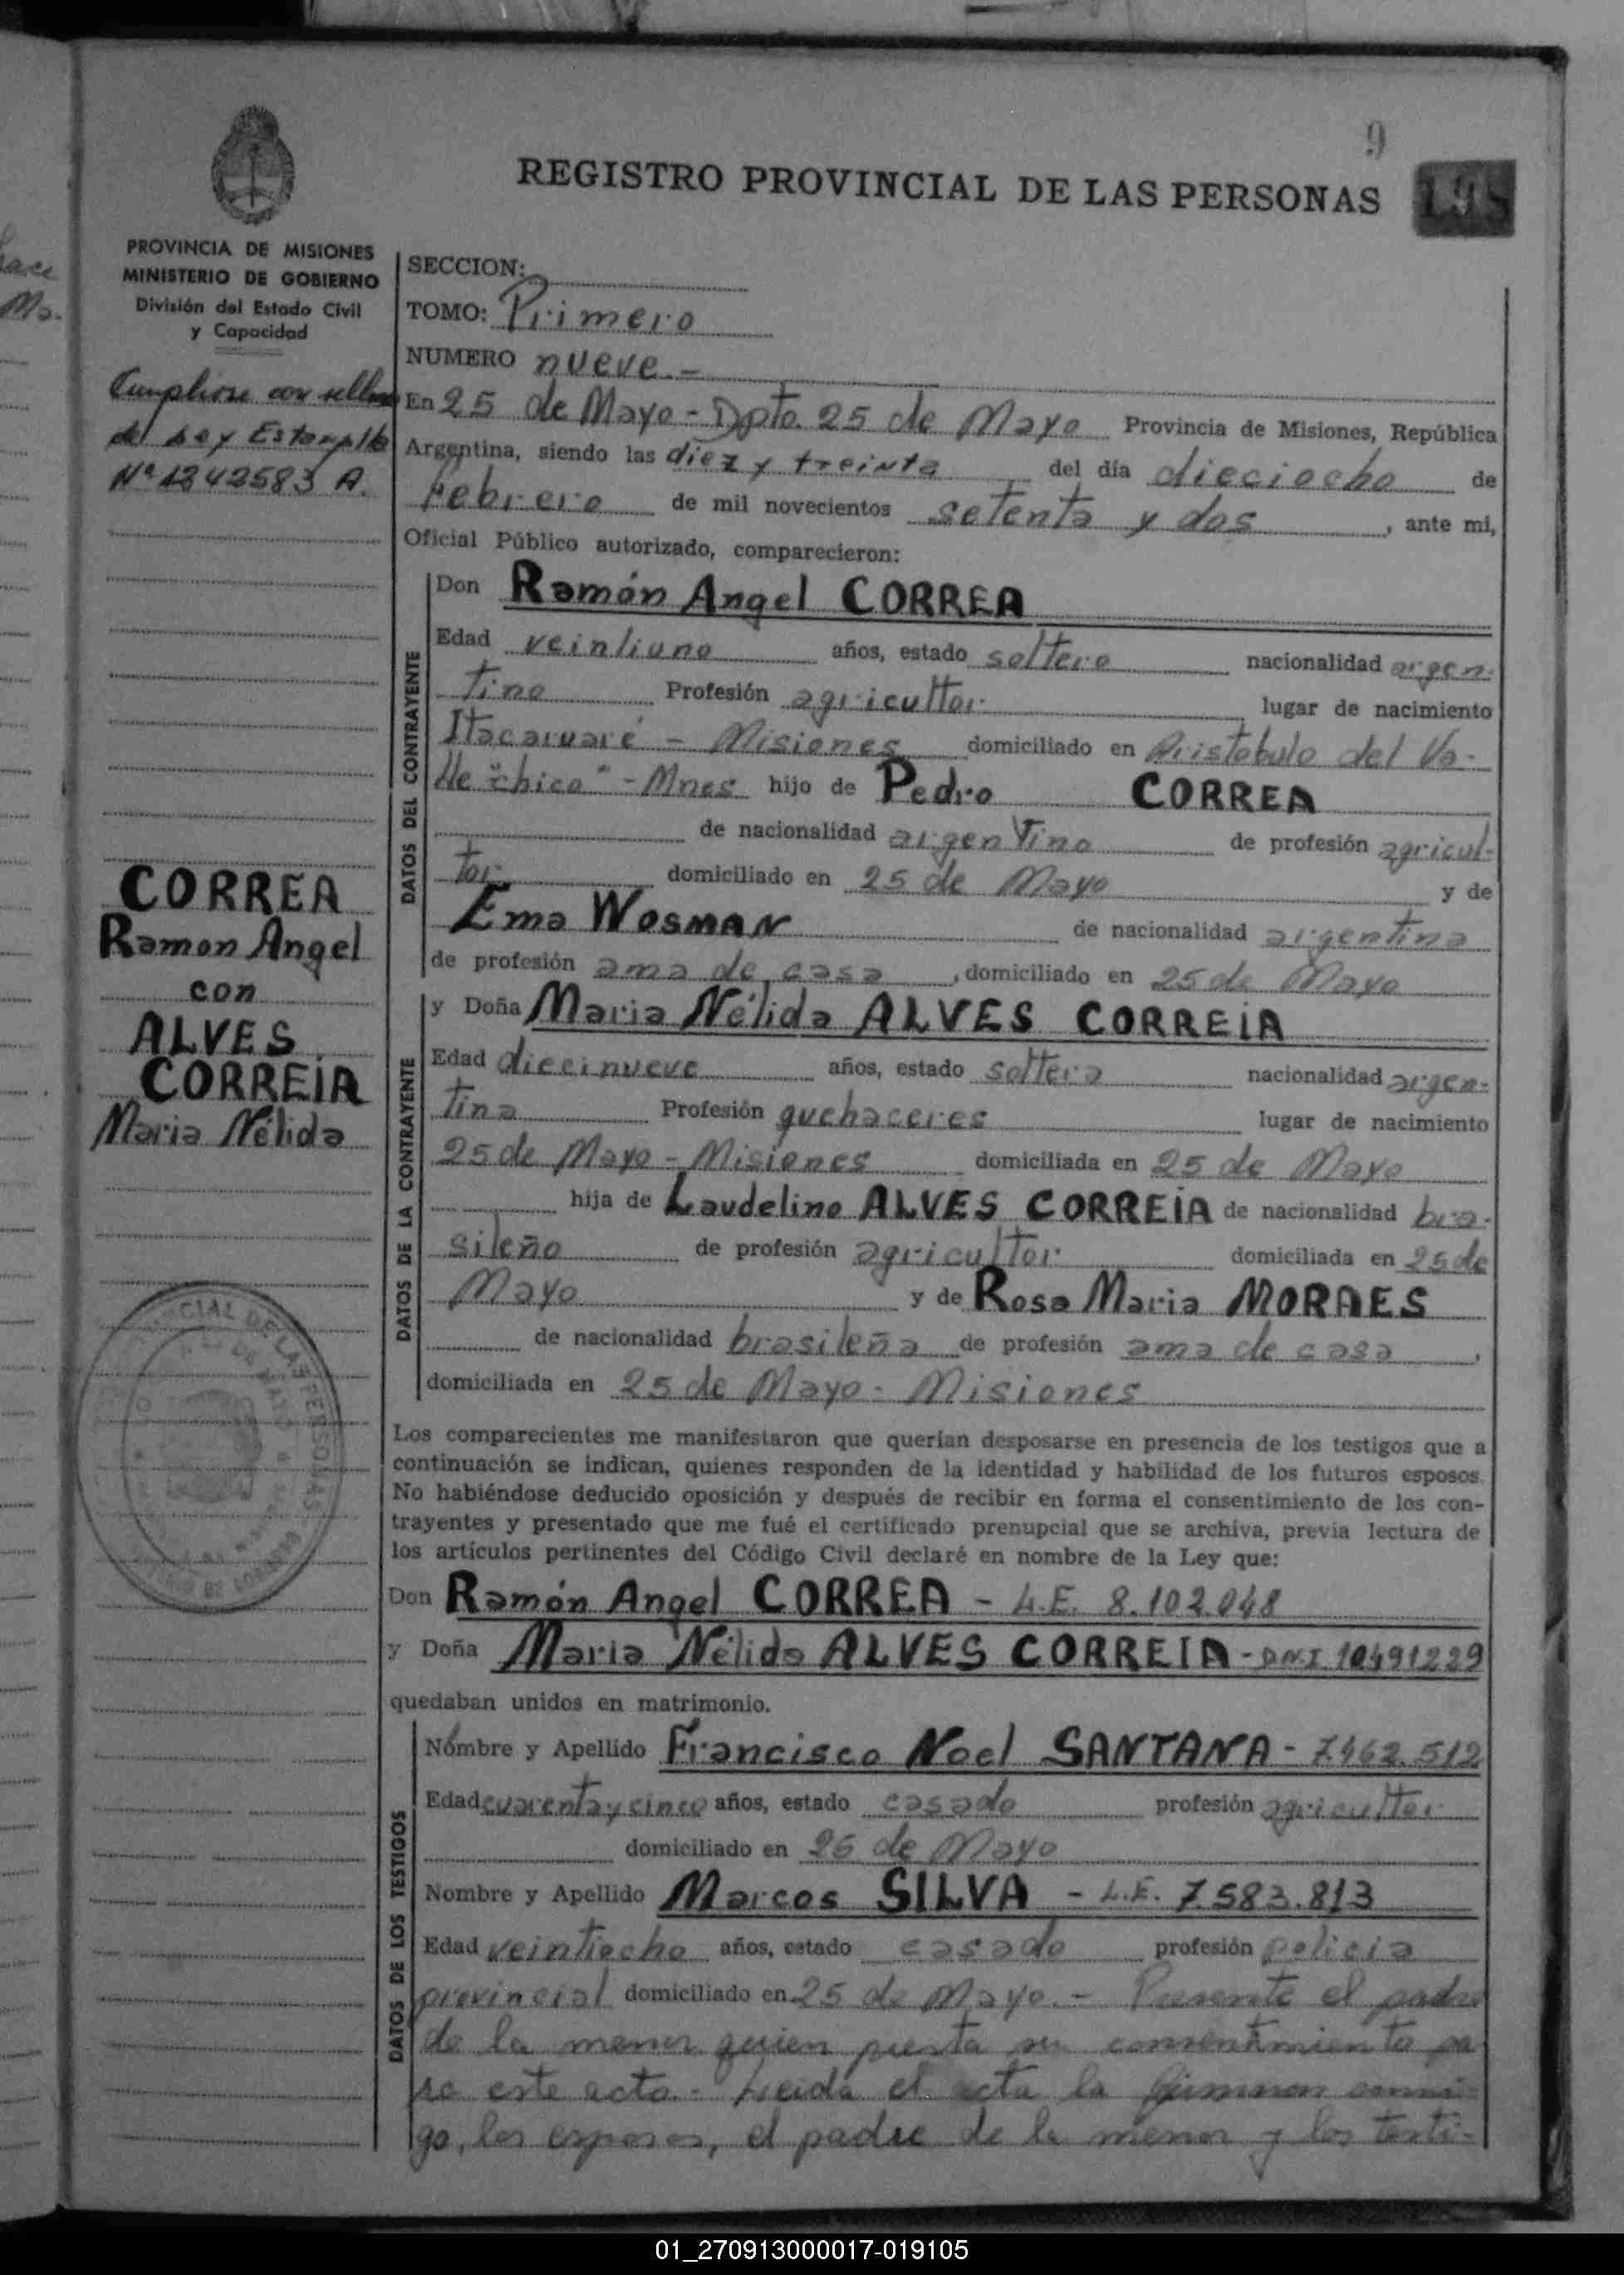 9
REGISTRO PROVINCIAL DE LAS PERSONAS
198
PROVINCIA DE MISIONES
MINISTERIO DE GOBIERNO
División del Estado Civil
y Capacidad
Cumpliose con sellado
de Ley Estampilla
Nº 1342583 A.
CORREA
Ramon Angel
con
ALVES
CORREIA
Maria Nélida
SECCION:
TOMO: Primero
NUMERO nueve.-
En 25 de Mayo - Dpto. 25 de Mayo Provincia de Misiones, República
Argentina, siendo las diez y treinta del día dieciocho de
Febrero de mil novecientos setenta y dos, ante mi,
Oficial Público autorizado, comparecieron:
DATOS DEL CONTRAYENTE
Don Ramón Angel CORREA
Edad veintiuno años, estado soltero nacionalidad argen-
tino Profesión agricultor lugar de nacimiento
Itacaruaré - Misiones domiciliado en Aristobulo del Va-
lle "chico" - Mnes hijo de Pedro CORREA
de nacionalidad argentino de profesión agricul-
tor domiciliado en 25 de Mayo y de
Ema WOSMAN de nacionalidad argentina
de profesión ama de casa, domiciliado en 25 de Mayo
DATOS DE LA CONTRAYENTE
y Doña Maria Nélida ALVES CORREIA
Edad diecinueve años, estado soltera nacionalidad argen-
tina Profesión quehaceres lugar de nacimiento
25 de Mayo - Misiones domiciliada en 25 de Mayo
hija de Laudelino ALVES CORREIA de nacionalidad bra-
sileño de profesión agricultor domiciliada en 25 de
Mayo y de Rosa Maria MORAES
de nacionalidad brasileña de profesión ama de casa,
domiciliada en 25 de Mayo - Misiones
Los comparecientes me manifestaron que querían desposarse en presencia de los testigos que a
continuación se indican, quienes responden de la identidad y habilidad de los futuros esposos.
No habiéndose deducido oposición y después de recibir en forma el consentimiento de los con-
trayentes y presentado que me fué el certificado prenupcial que se archiva, previa lectura de
los artículos pertinentes del Código Civil declaré en nombre de la Ley que:
Don Ramón Angel CORREA - L.E. 8.102.048
y Doña Maria Nélida ALVES CORREIA - DNI 10491229
quedaban unidos en matrimonio.
DATOS DE LOS TESTIGOS
Nombre y Apellido Francisco Noel SANTANA - 7.462.512
Edad cuarenta y cinco años, estado casado profesión agricultor
domiciliado en 25 de Mayo
Nombre y Apellido Marcos SILVA - L.E. 7.583.813
Edad veintiocho años, estado casado profesión policia
provincial domiciliado en 25 de Mayo.- Presente el padre
de la menor quien presta su consentimiento pa
ra este acto.- Leida el acta la firman conmi-
go, los esposos, el padre de la menor y los testi-
01_270913000017-019105